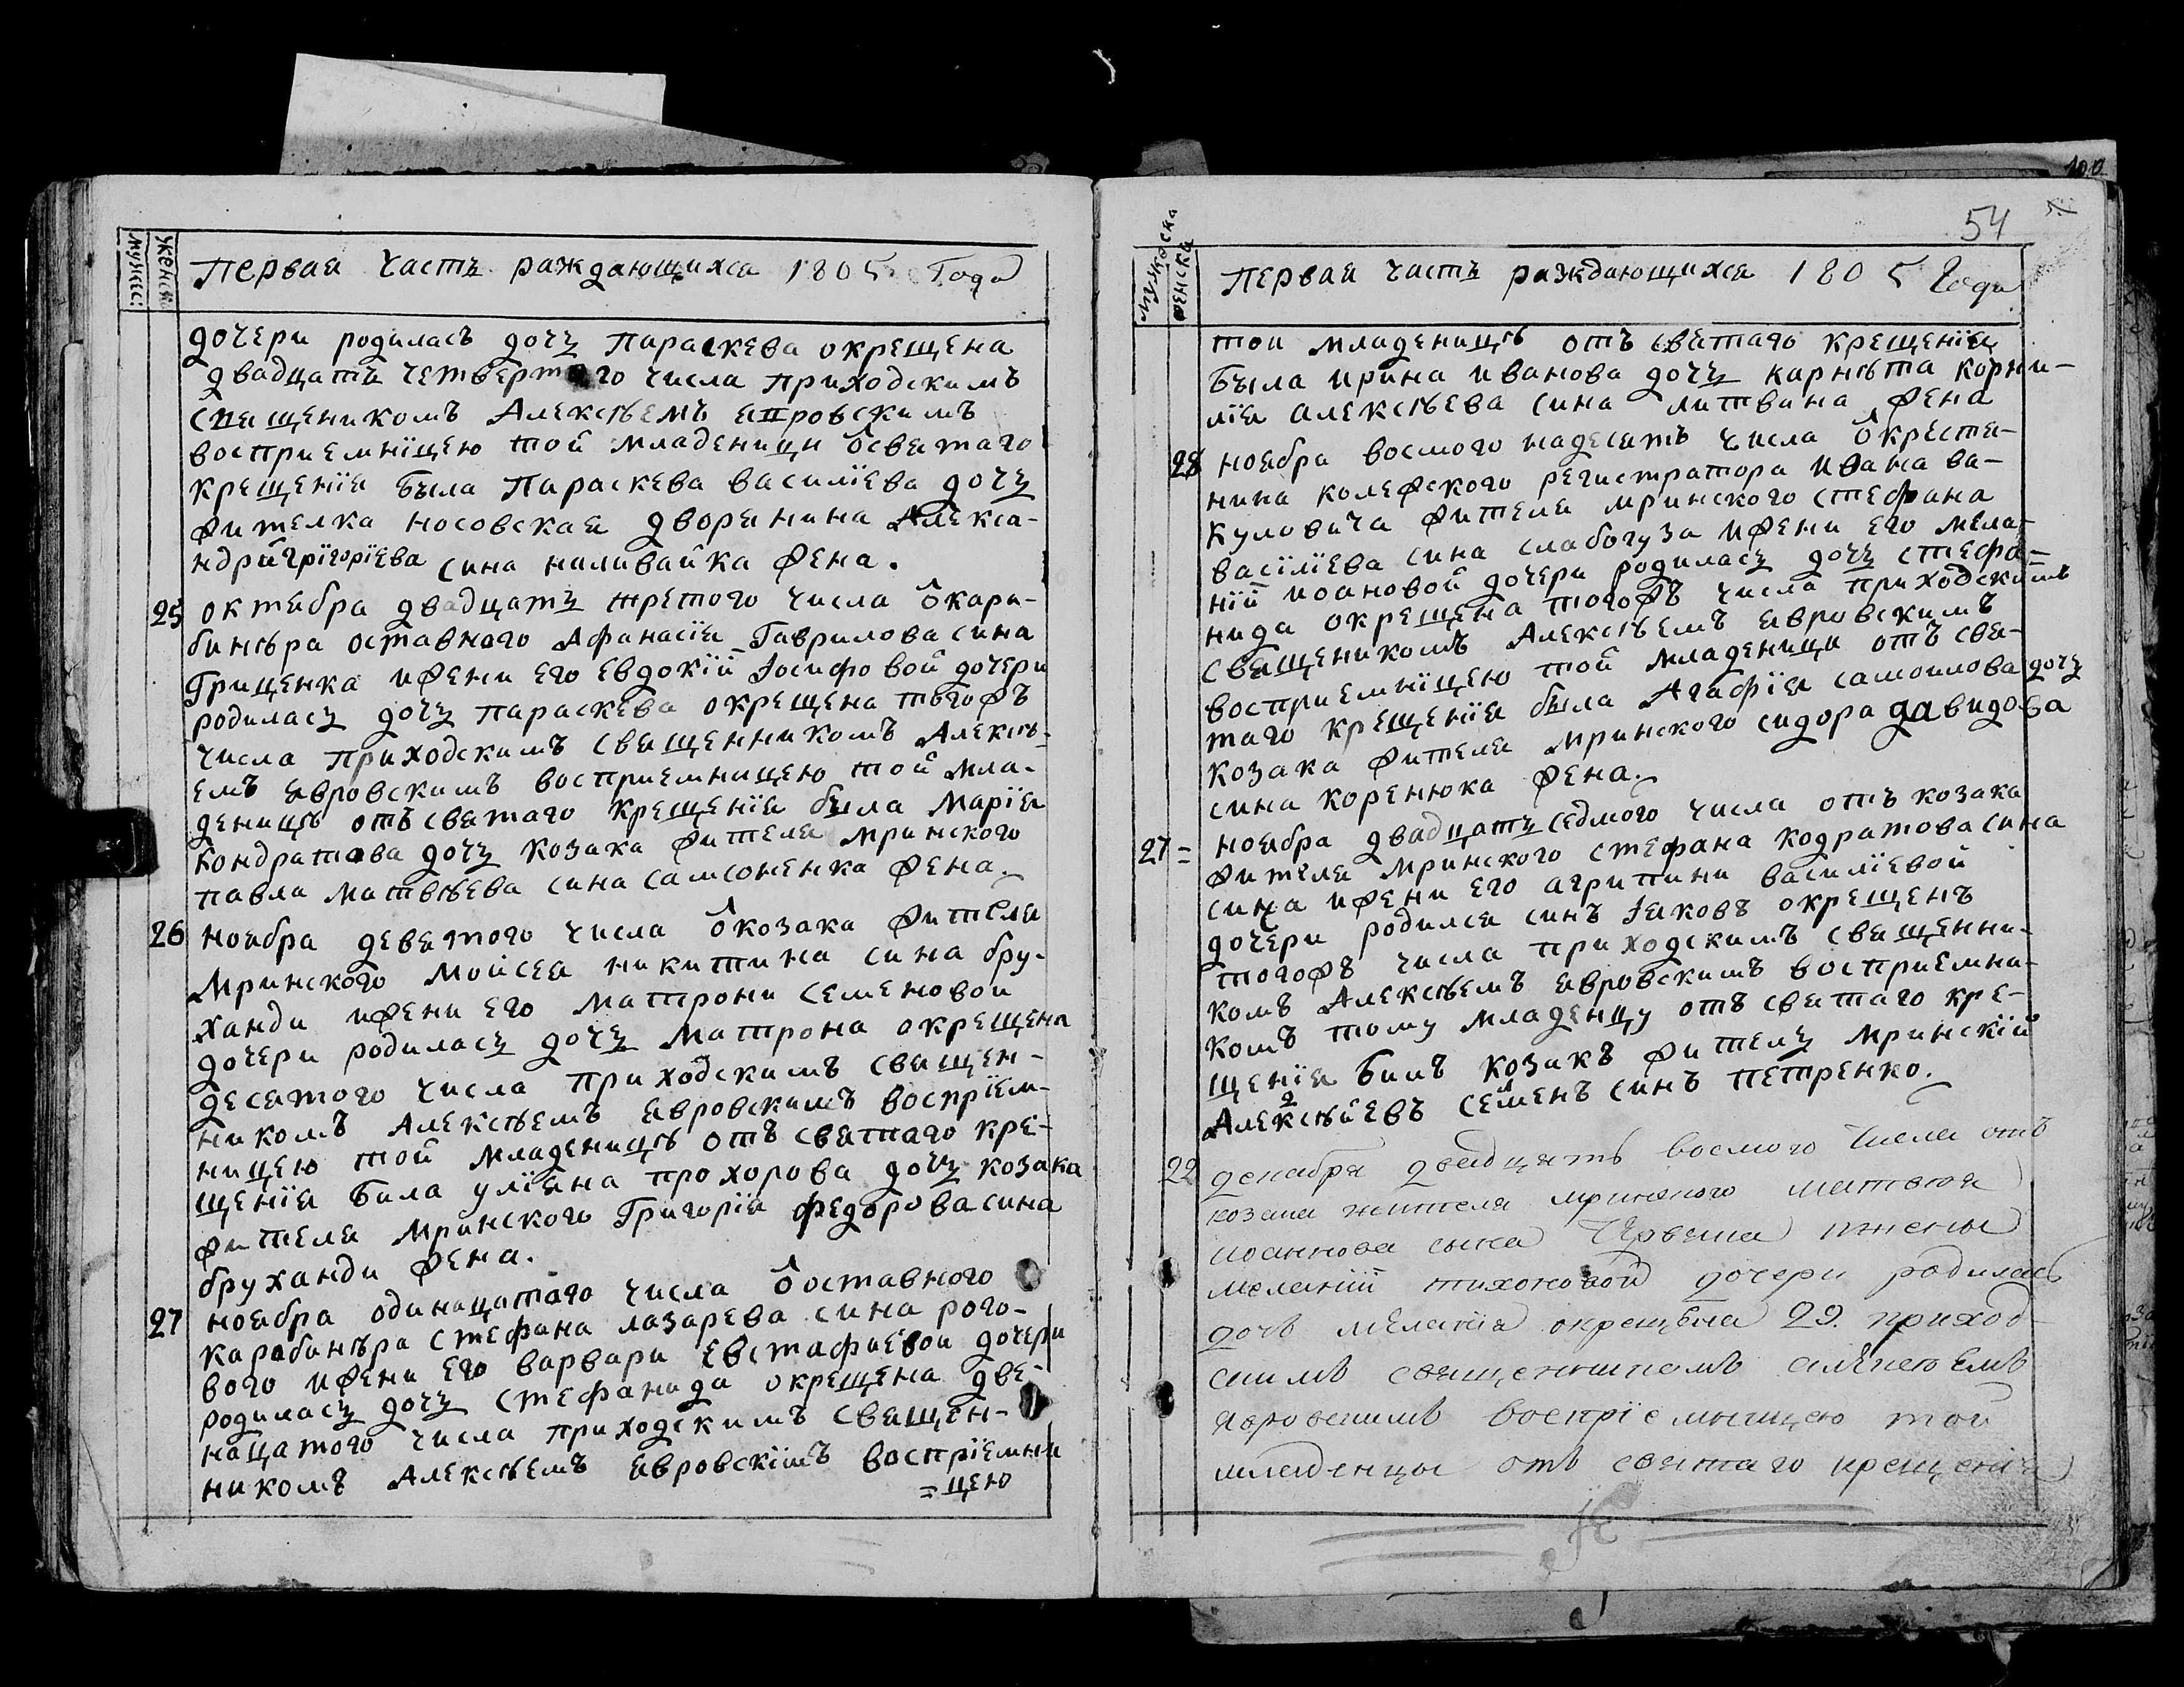 мужес:
женско
Первая часть раждающихся 1805 Года
дочери родиласъ дочь Параскева окрещена
двадцать четвертого числа приходскимъ
священикомъ Алексѣемъ Явровскимъ
восприемнїцею той младеници ѿ святаго
крещенїя была Параскева василїева дочь
жителка носовская дворянина Алекса-
ндрий грїгорїева сина наливайка жена.
25 октября двадцать третого числа ѿ кара-
бинѣра оставного Афанасїя Гаврилова сина
Грищенка и жени его Евдокїй Іосифовой дочери
родилась дочь параскева окрещена тогожъ
числа приходскимъ священникомъ Алексѣ-
емъ явровскимъ восприемницею той мла-
деницѣ отъ святаго крещенїя была Марїя
Кондратова дочь козака жителя мринского
павла матвѣева сина самсоненка жена.
26 ноября девятого числа ѿ козака жителя
мринского Мойсея никитина сина бру-
ханди и жени его матрони семеновой
дочери родилась дочь матрона окрещена
десятого числа приходскимъ священ-
никомъ Алексѣемъ явровскимъ воспрїем-
ницею той младеницѣ отъ святаго кре-
щенїя била улїяна прохорова дочь козака
жителя мринского Григорїя федорова сина
бруханди жена.
27 ноября одинацатаго числа ѿ оставного
карабинѣра стефана лазарева сина рого-
вого и жени его варвари Евстафиевой дочери
родилась дочь стефанида окрещена две-
нацатого числа приходскимъ священ-
никомъ Алексѣемъ явровскїмъ воспрїемни
=цею
54
мужеска
женска
Первая часть раждающихся 1805 Года
той младеницѣ отъ святаго крещенїя
была ирина иванова дочь карнѣта корни-
лїя алексѣева сина литвина жена
28 ноября восмого надесять числа ѿ крестя-
нина колежского регистратора ивана ва-
куловича жителя мринского стефана
васїлїева сина слабогуза и жени его мела-
нїй иоановой дочери родилась дочь стефа-
нида окрещена тогожъ числа приходскимъ
священикомъ Алексѣемъ явровскимъ
восприемнїцею той младеници отъ свя-
таго крещенїя была Агафїя самоилова дочь
козака жителя мринского сидора давидова
сина коренюка жена.
27= ноября двадцать седмого числа отъ козака
жителя мринского стефана кодратова сина
сина и жени его агрипини василїевой
дочери родился синъ Іяковъ окрещенъ
тогожъ числа приходскимъ священни-
комъ Алексѣемъ явровскимъ восприемни-
комъ тому младенцу отъ святаго кре-
щенїя билъ козакъ житель мринскїй
Алексѣйевъ семенъ синъ петренко.
22 декабря двадцять восмого числа отъ
козака жителя мринского матвѣя
иоаннова сына Червяка и жены
меланїй тихоновой дочери родилась
дочь меланїа окрещена 29. приход-
скимъ священникомъ алексѣемъ
явровскимъ воспрїемницею той
младенцы отъ святаго крещенїя